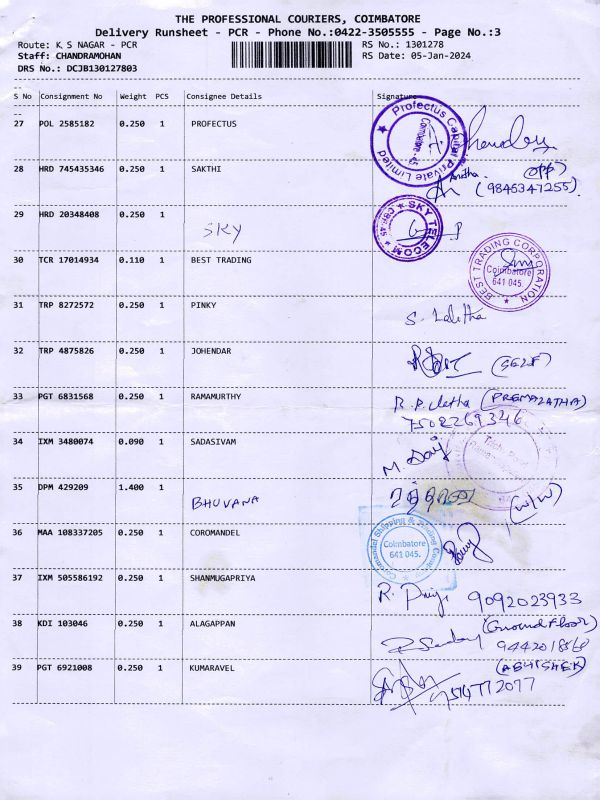 THE PROFESSIONAL COURIERS, COIMBATORE
Delivery Runsheet - PCR - Phone No.:0422-3505555 - Page No.:3
Route: K S NAGAR - PCR RS No.: 1301278
Staff: CHANDRAMOHAN RS Date: 05-Jan-2024
DRS No.: DCJB130127803
S No Consignment No Weight PCS Consignee Details Signature
27 POL 2585182 0.250 1 PROFECTUS
Profectus Capital Private Limited
Coimbatore - 45
28 HRD 745435346 0.250 1 SAKTHI
(OPP)
(9846347255)
29 HRD 20348408 0.250 1 SKY
SKY TELECOM
CBE-45
30 TCR 17014934 0.110 1 BEST TRADING
BEST TRADING CORPORATION
Coimbatore
641 045.
31 TRP 8272572 0.250 1 PINKY S. Lalitha
32 TRP 4875826 0.250 1 JOHENDAR (SELF)
33 PGT 6831568 0.250 1 RAMAMURTHY (PREMALATHA)
7502269346
34 IXM 3480074 0.090 1 SADASIVAM
35 DPM 429209 1.400 1 BHUVANA (W/W)
36 MAA 108337205 0.250 1 COROMANDEL
Coromandel Shipping & Trading
Coimbatore
641 045.
37 IXM 505586192 0.250 1 SHANMUGAPRIYA R. Priya 9092023933
38 KDI 103046 0.250 1 ALAGAPPAN (Ground Floor)
39 PGT 6921008 0.250 1 KUMARAVEL (ABHISHEK)